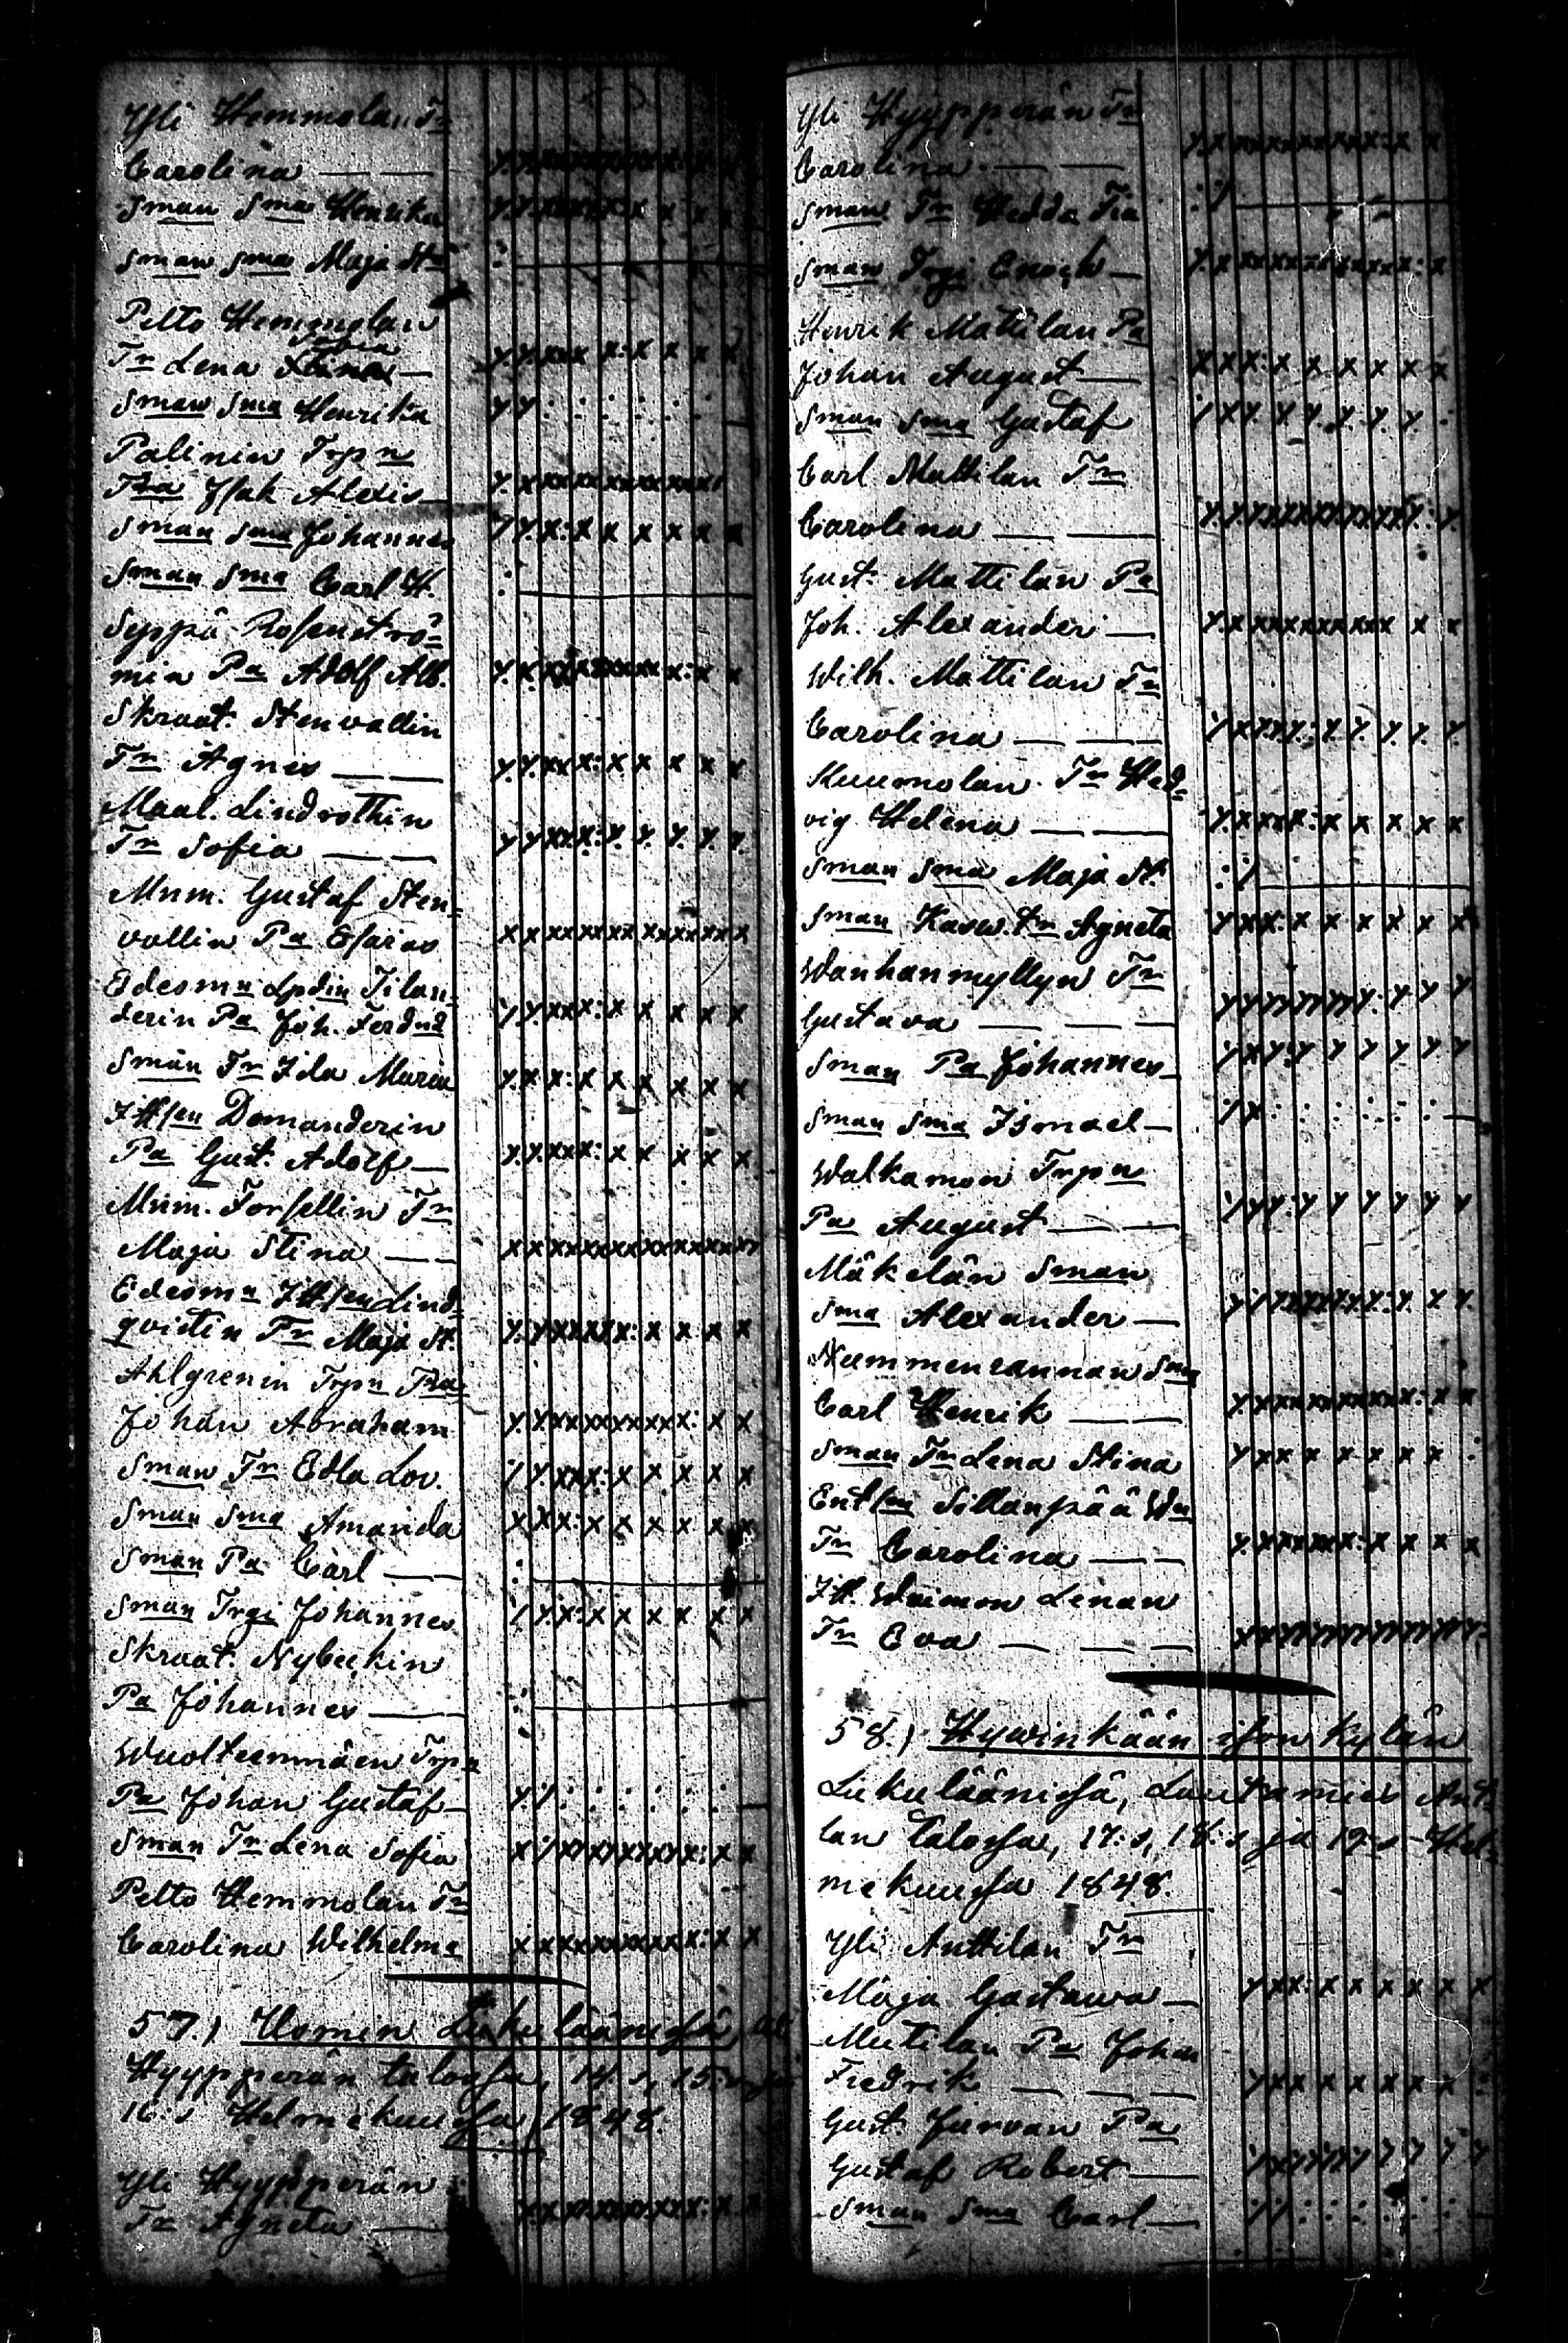 Yli Hemmolan Tr
Carolina — —
Sman Sma Henrika
Sman Sma Maja St
Pelto Hemmolan
Sofia
Tr Lena Stina —
Sman Sma Henrika
Palinin Trpn
Tra Isak Alexis —
Sman Sma Johannes
Sman Sma Carl H.
Seppä Rosenströ=
min Pa Adolf Alb.
Skraat. Stenvallin
Tr Agnes — —
Maal. Lindrothin
Tr Sofia — —
Mnm. Gustaf Sten=
vallin Pa Esaias
Edesmn Lpdin Tilan=
derin Pa Joh. Ferdnd
Sman Tr Ida Maria
Ittsen Domanderin
Pa Gust. Adolf —
Mnm. Forsellin Tr
Maja Stina — —
Edesmn Ittsen Lind=
qvistin Tr Maja St.
Ahlgrenin Trpn Tra
Johan Abraham
Sman Tr Edla Lov.
Sman Sma Amanda
Sman Pa Carl — —
Sman Trgi Johannes
Skraat. Nybeckin
Pa Johannes —
Wuolteenmäen Trpn
Pa Johan Gustaf —
Sman Tr Lena Sofia
Pelto Hemmolan Tr
Carolina Wilhelma
57.) Uomin Lukuläänissä,
Hyypperän talossa, 14:s, 15:s ja
16:s Helmekuussa 1848.
Yli Hyypperän
Tr Agneta —
Yli Hyypperän Tr
Carolina — —
Sman Tr Hedda Fia
Sman Trgi Enoch —
Henrik Mattilan Pa
Johan August —
Sman Sma Gustaf
Carl Mattilan Tr
Carolina — —
Gust. Mattilan Pa
Joh. Alexanderi —
Wilh. Mattilan Tr
Carolina — —
Kuumolan Tr Hed=
vig Helena — —
Sman Sma Maja St.
Sman Kasw. tr Agneta
Wanhanmyllyn Tr
Gustava — — —
Sman Pa Johannes —
Sman Sma Ismael —
Walkamon Trpn
Pa August — —
Mäkelän Sman
Sma Alexander —
Nummenrannan Sma
Carl Henrik — —
Sman Tr Lena Stina
Entsen Sillanpää Wn
Tr Carolina — —
Itt. Waimon Lenan
Tr Eva — — —
58.) Hywinkään ison kylän
Lukuläänissä, Lautamies Ant=
lan talossa, 17:s, 18:s ja 19:s Hel=
mekuussa 1848.
Yli Anttilan Tr
Maja Gustawa —
Mutilan Pa Johan
Fredrik — — —
Gust. Jurvan Pa
Gustaf Robert —
Sman Sma Carl —